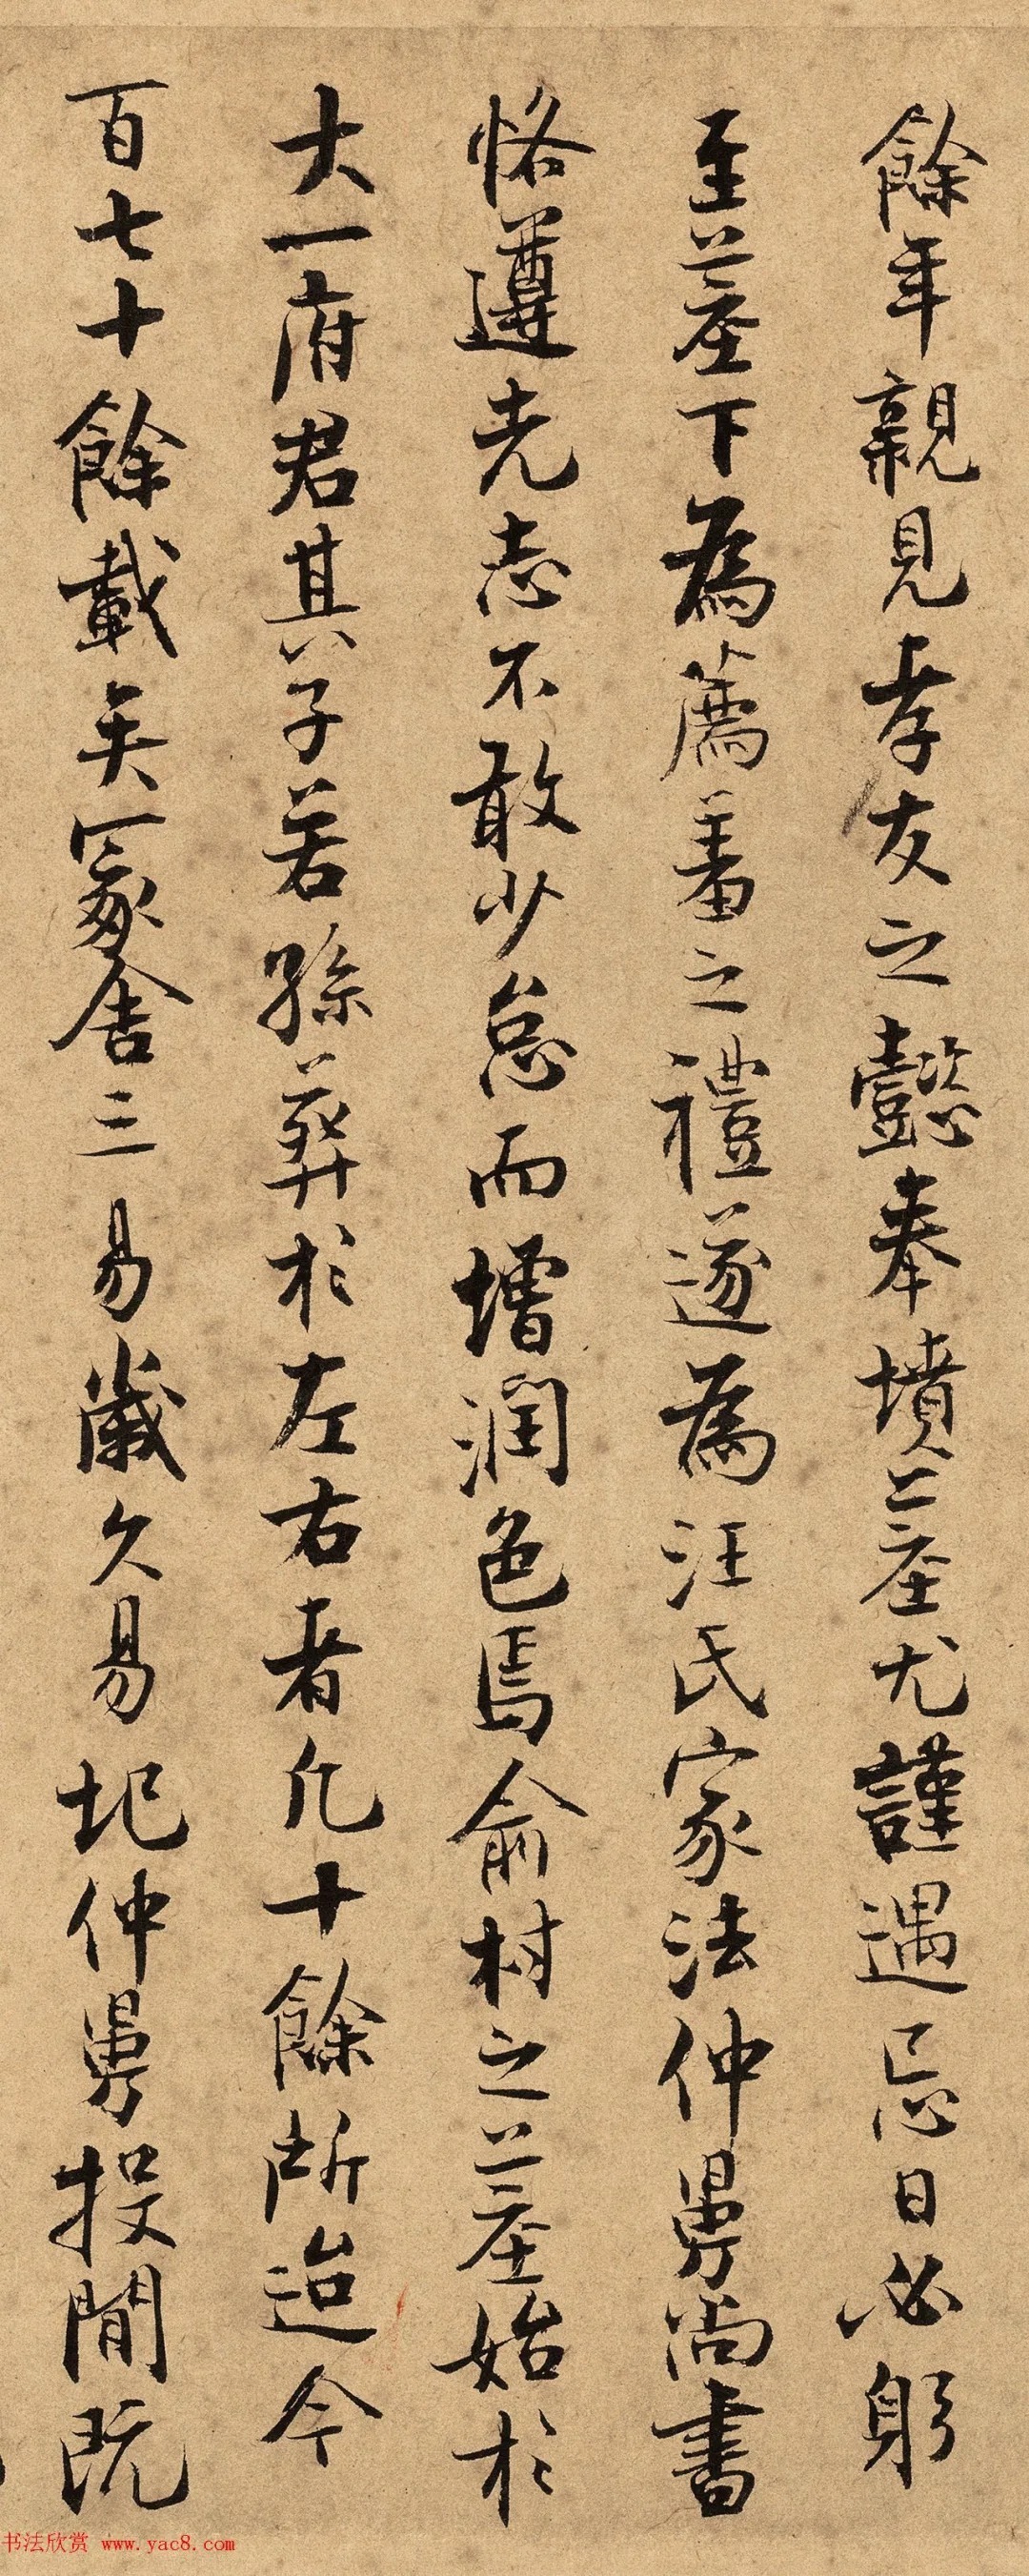 餘年親見孝友之懿奉墳墓尤謹遇忌日必躬
至墓下為薦羞之禮遂為汪氏家法仲舅尚書
恪遵先志不敢少怠而增潤色焉俞村之墓始於
大一府君其子若孫葬於左右者凡十餘所迨今
百七十餘載矣冢舍三易歲久易圮仲舅投閒既
书法欣赏 www.yac8.com